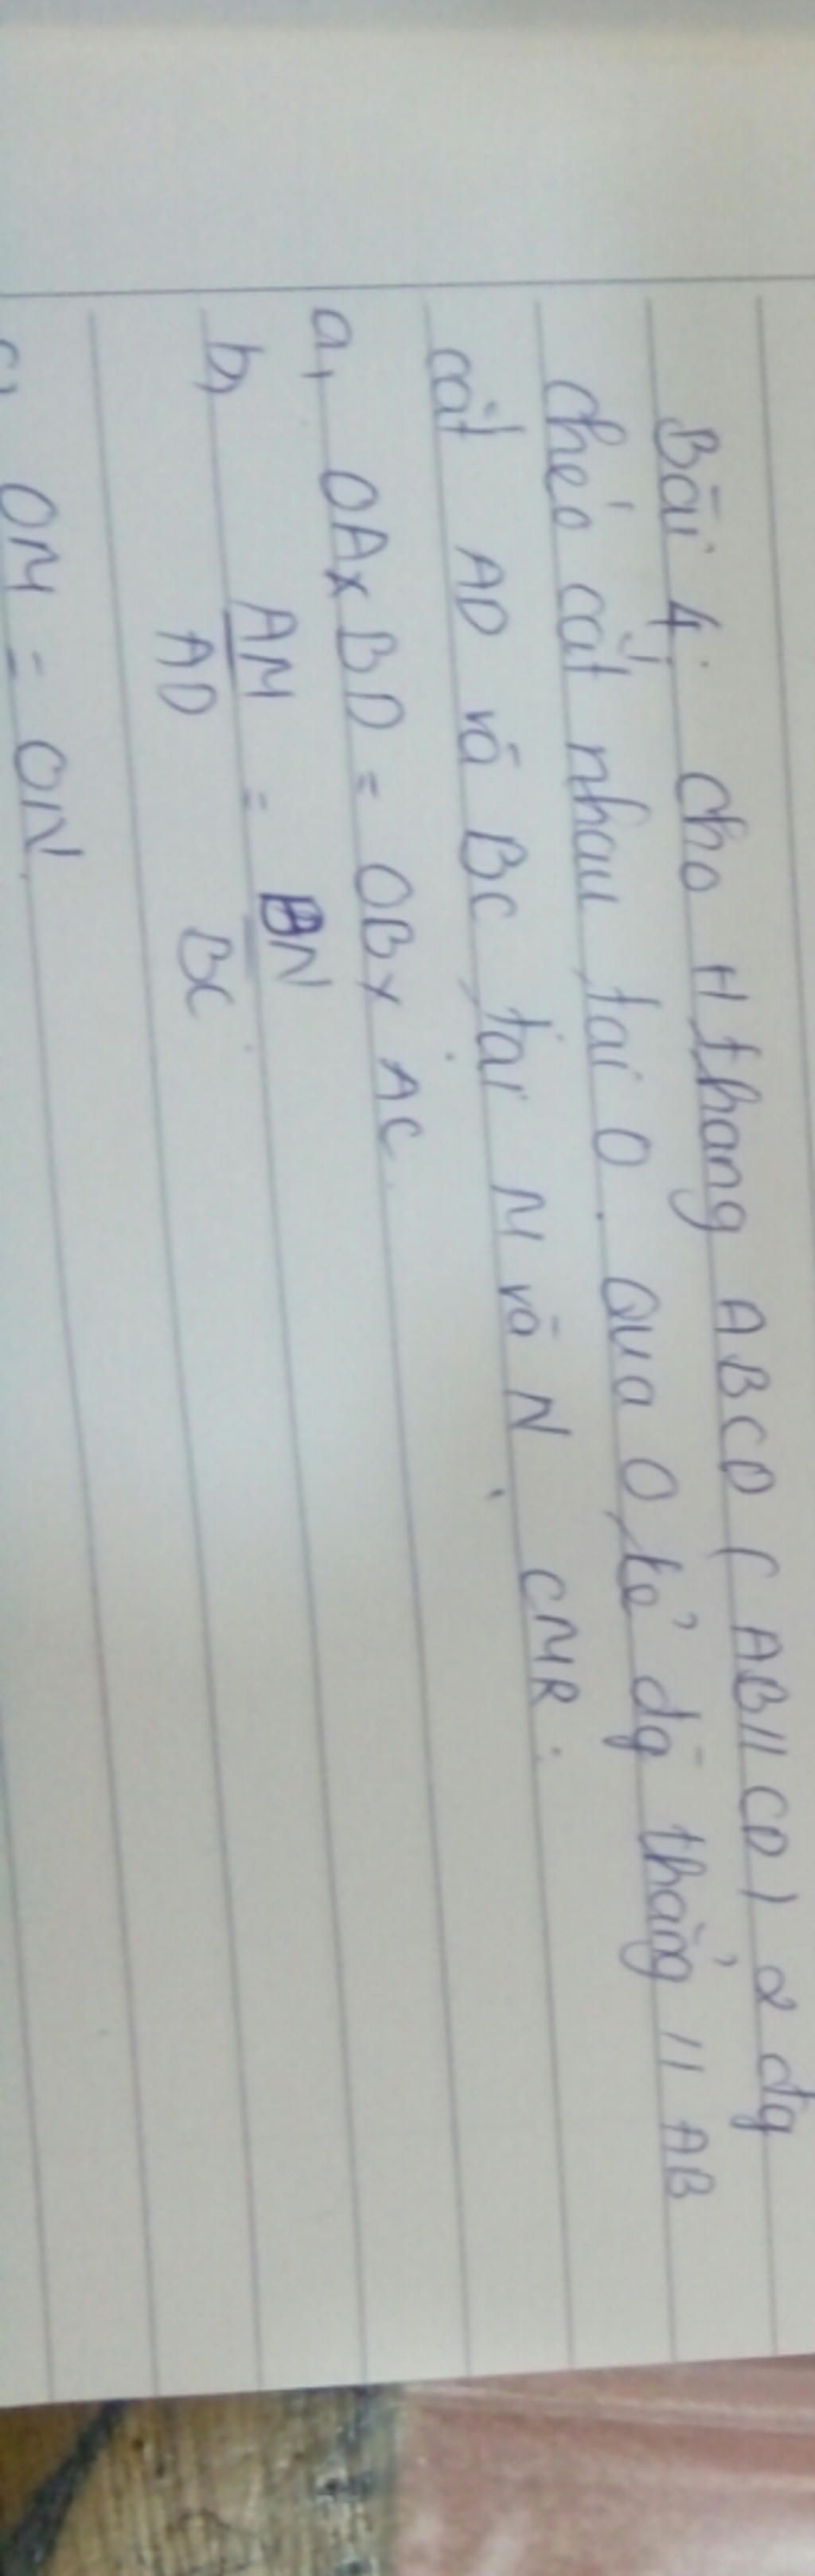 Bài 4: Cho H thang ABCD ( AB // CD ) 2 đg
chéo cắt nhau tại O. Qua O kẻ đg thẳng // AB
cắt AD và BC tại M và N. CMR:
a, OA x BD = OB x AC.
b, AM/AD = BN/BC
c, OM = ON.